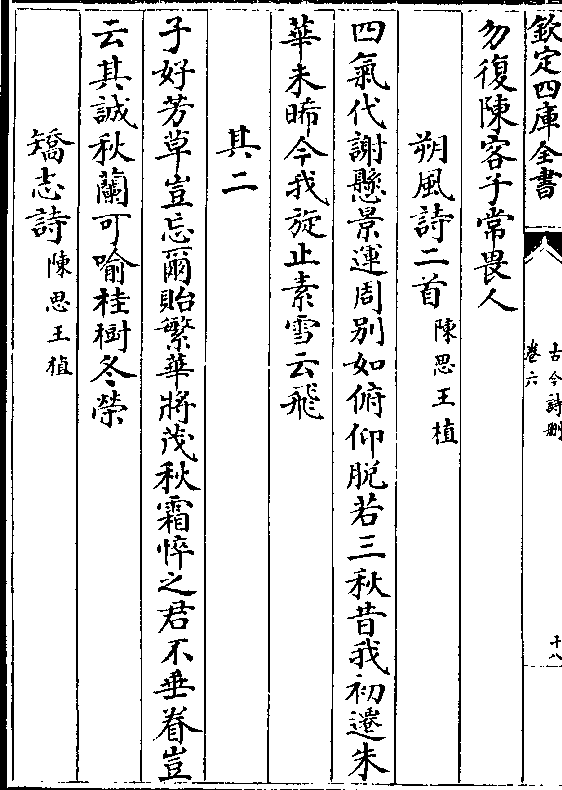 欽定四庫全書
古今詩刪
卷六
十八
勿復陳客子常畏人
朔風詩二首陳思王植
四氣代謝懸景運周别如俯仰脱若三秋昔我初遷朱
華未晞今我旋止素雪云飛
其二
子好芳草豈忘爾貽繁華將茂秋霜悴之君不垂眷豈
云其誠秋蘭可喻桂樹冬榮
矯志詩陳思王植